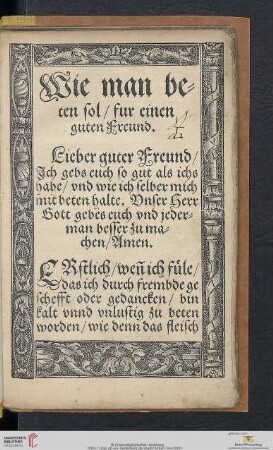 Wie man be-
ten sol / fur einen
guten Freund.
Lieber guter Freund /
Ich gebs euch so gut als ichs
habe / vnd wie ich selber mich
mit beten halte. Vnser Herr
Gott gebe es euch vnd jeder-
man besser zu ma-
chen / Amen.
ERstlich / wenn ich füle /
das ich durch frembde ge
schefft oder gedancken / bin
kalt vnnd vnlustig zu beten
worden / wie denn das fleisch
UNIVERSITÄTS-
BIBLIOTHEK
HEIDELBERG
© Universitätsbibliothek Heidelberg